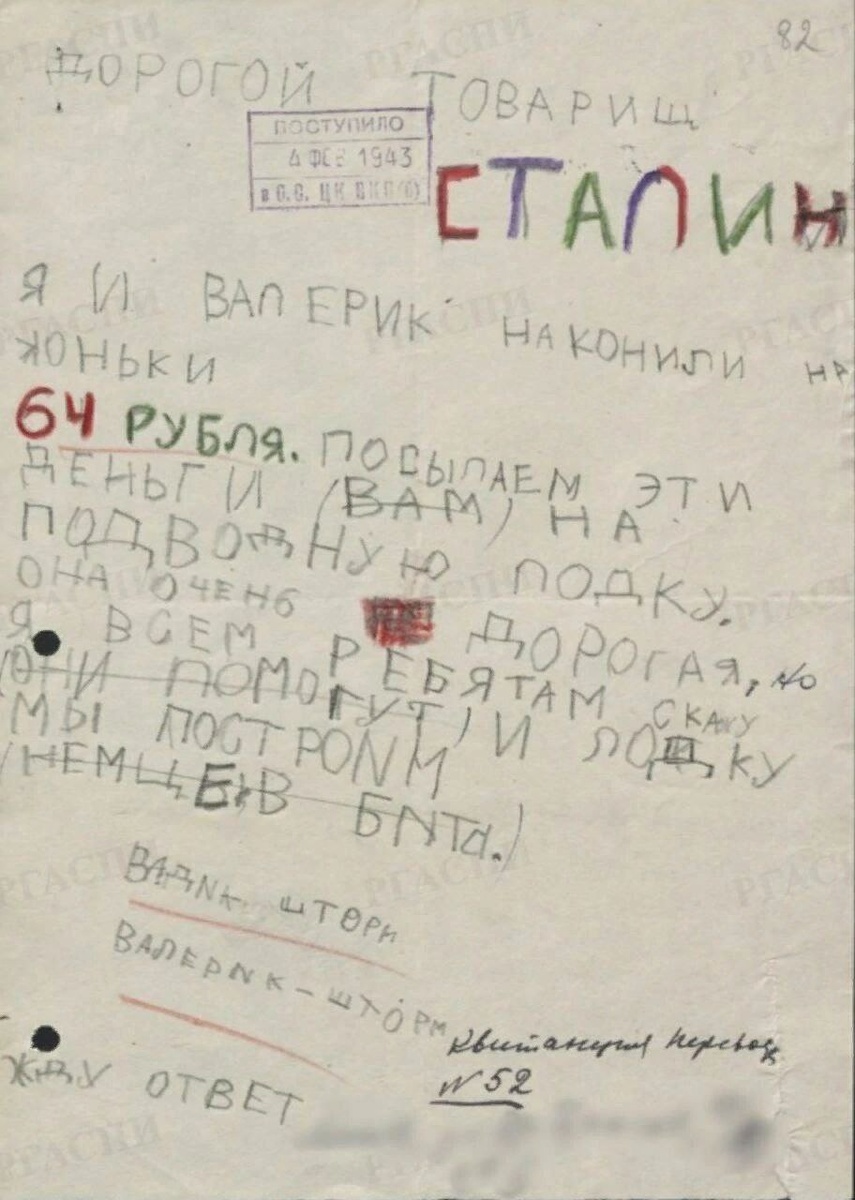 82
ДОРОГОЙ ТОВАРИЩ
ПОСТУПИЛО
4 ФЕВ 1943
в О.С. ЦК ВКП(б)
СТАЛИН
Я И ВАЛЕРИК НАКОНИЛИ НА
КОНЬКИ
64 РУБЛЯ. ПОСЫЛАЕМ ЭТИ
ДЕНЬГИ (ВАМ) НА
ПОДВОДНУЮ ЛОДКУ.
ОНА ОЧЕНЬ ДОРОГАЯ, но
Я ВСЕМ РЕБЯТАМ СКАЖУ
(ОНИ ПОМОГУТ) И ЛОДКУ
МЫ ПОСТРОИМ
(НЕМЦЕВ БИТЬ.)
ВАДИК ШТОРМ
ВАЛЕРИК – ШТОРМ
Квитанция перевод
N 52
ЖДУ ОТВЕТ
РГАСПИ